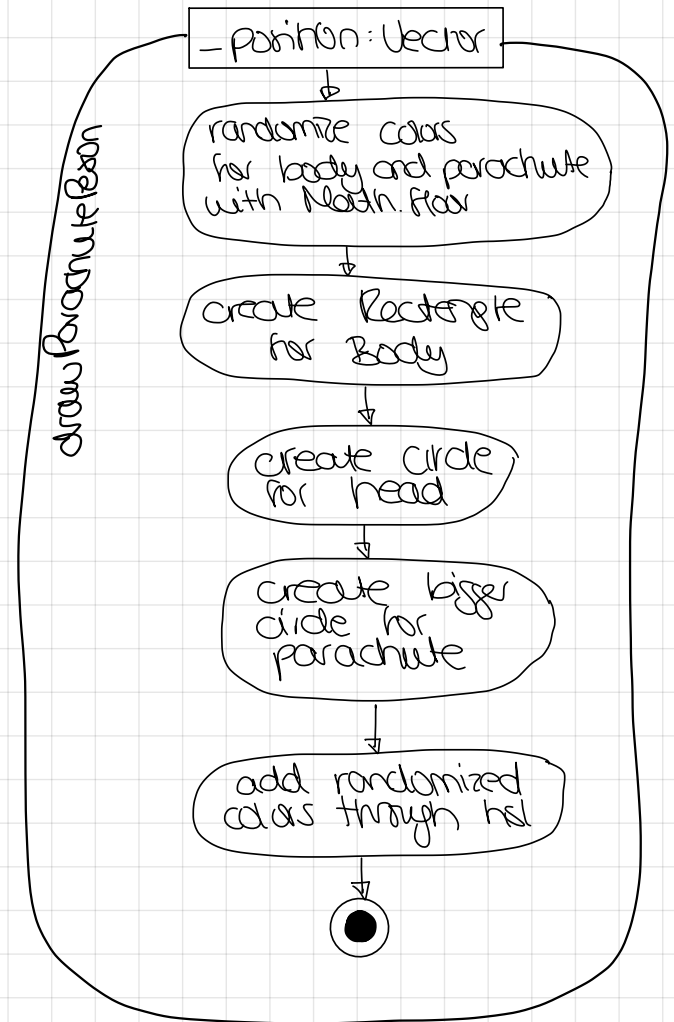 _position: Vector
drawParachutePerson
randomize colors
for body and parachute
with Math.floor
create Rectengle
for Body
create circle
for head
create bigger
circle for
parachute
add randomized
colors through hsl